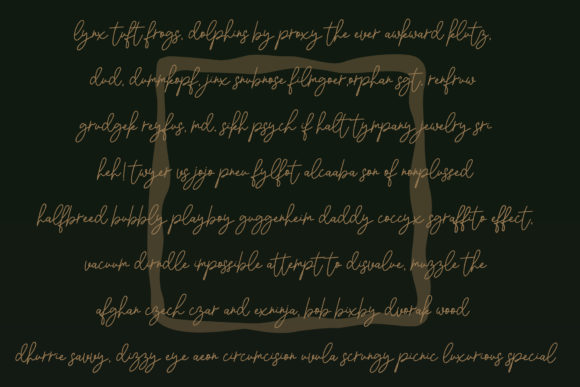 lynx tuft frogs, dolphins by proxy the ever awkward klutz,
dud, dummkopf, jinx snubnose filmgoer, orphan sgt. renfruw
grudgek reyfus, md. sikh psych if halt tympany jewelry sri
heh! twyer vs jojo pneu fylfot alcaaba son of nonplussed
halfbreed bubbly playboy guggenheim daddy coccyx sgraffito effect,
vacuum dirndle impossible attempt to disvalue, muzzle the
afghan czech czar and exninja, bob bixby dvorak wood
dhurrie savvy, dizzy eye aeon circumcision uvula scrungy picnic luxurious special